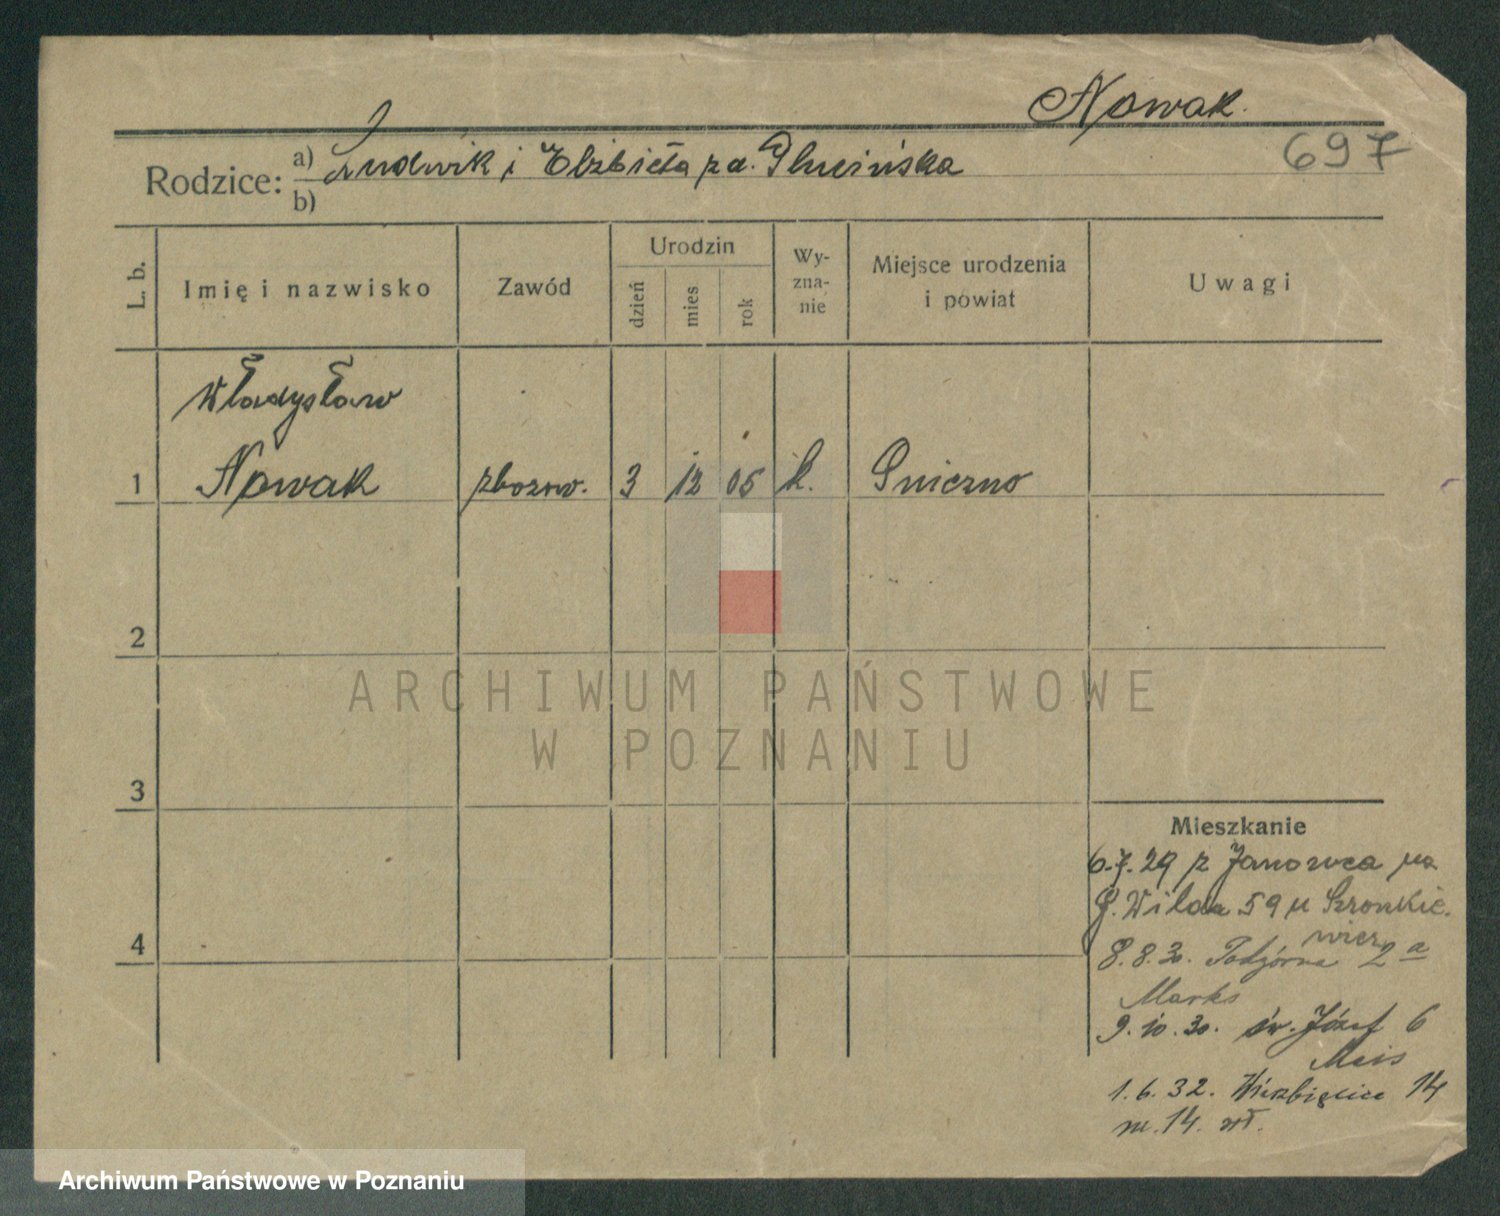 Nowak.
697
Rodzice: a) Ludwik i Elżbieta z d. Glucińska
b)
L. b.
Imię i nazwisko
Zawód
Urodzin
dzień
mies
rok
Wy-
zna-
nie
Miejsce urodzenia
i powiat
Uwagi
Władysław
1 Nowak zbożow. 3 12 05 k. Gniezno
2
3
4
Mieszkanie
6.7.29 z Janowca na
G. Wilda 59 u Szronkie-
wicz
8.8.30. Podgórna 2a
Marks
9.10.30. św. Józef 6
Meis
1.6.32. Wierzbięcice 14
m. 14. wł.
ARCHIWUM PAŃSTWOWE
W POZNANIU
Archiwum Państwowe w Poznaniu